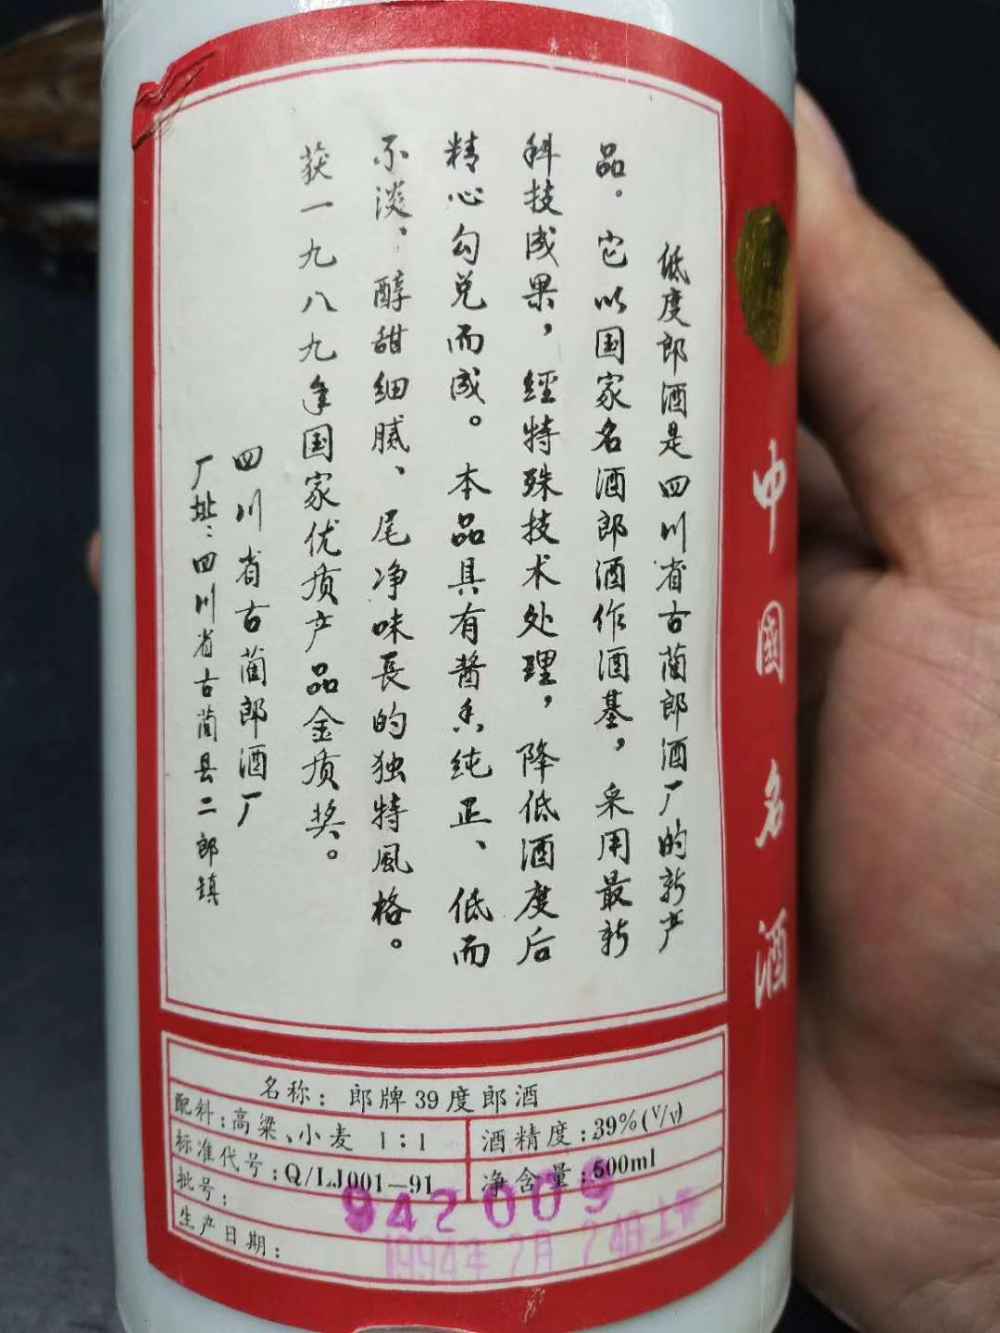 低度郎酒是四川省古蔺郎酒厂的新产
品。它以国家名酒郎酒作酒基，采用最新
科技成果，經特殊技术处理，降低酒度后
精心勾兑而成。本品具有酱香纯正、低而
不淡、醇甜细腻、尾净味長的独特風格。
获一九八九年国家优质产品金质奖。
四川省古蔺郎酒厂
厂址：四川省古蔺县二郎镇
中國名酒
名称：郎牌39度郎酒
配料：高粱、小麦 1：1
酒精度：39%(V/V)
标准代号：Q/LJ001—91
净含量：500ml
批号：
942009
生产日期：
1994年7月24日上午